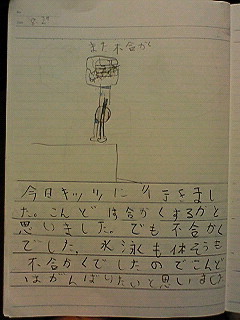 8.29
また不合かく
今日キッツに行きまし
た。こんどは合かくするかと
思いました。でも不合かく
でした。水泳も体そうも
不合かくでしたのでこんど
はがんばりたいと思いました